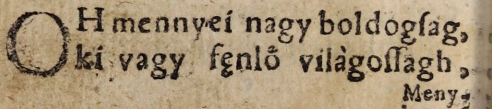 OH mennyei nagy boldogſag,
ki vagy fęnlo̊ vilàgoſſagh,
Meny-